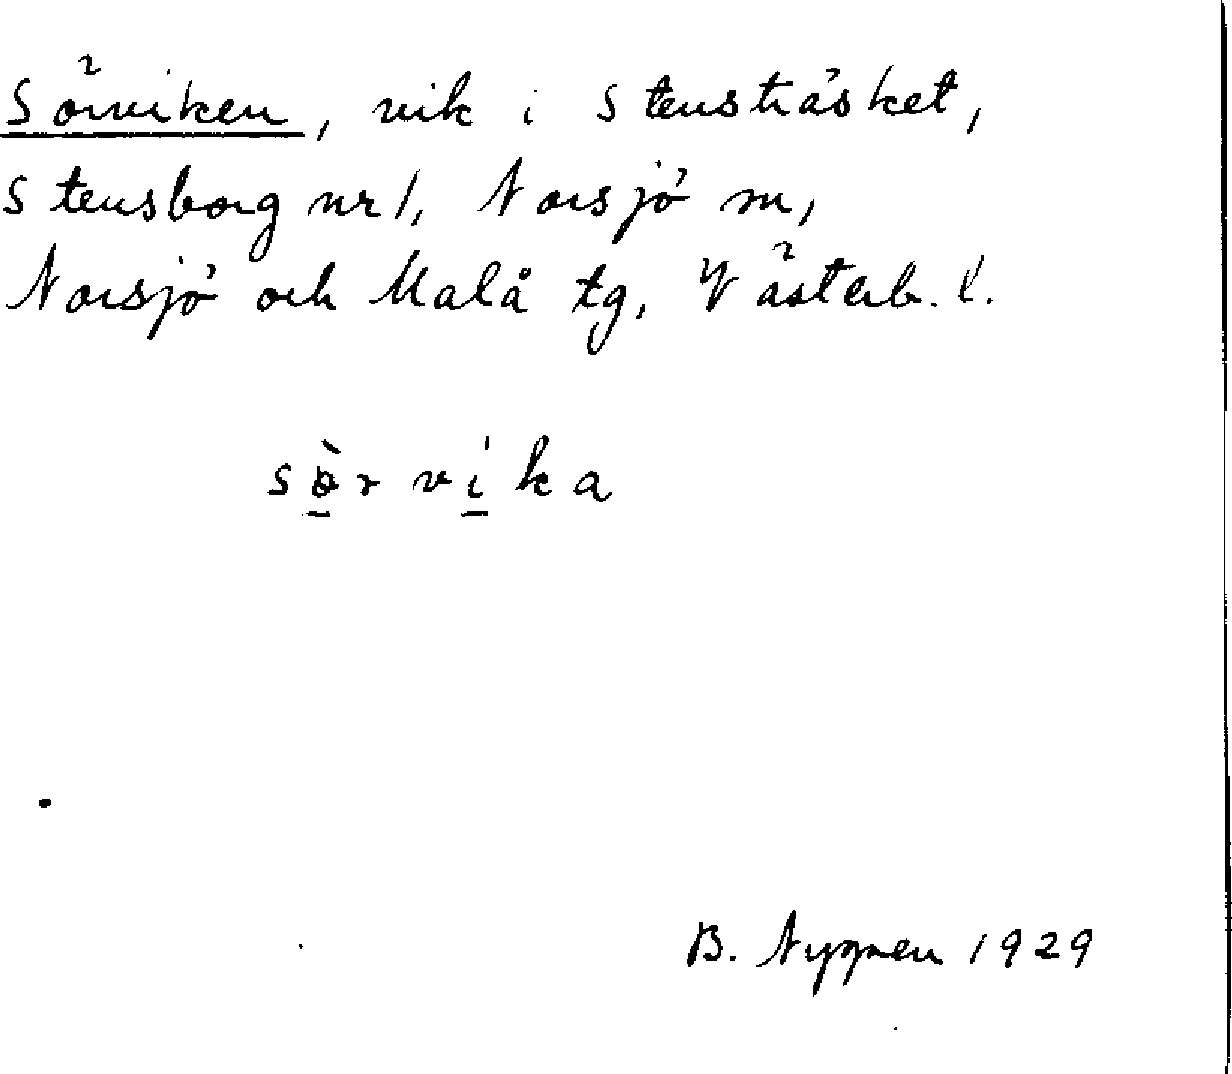 Sörviken, vik i Stensträsket,
Stensborg nr 1, Norsjö sn,
Norsjö och Malå tg, Västerb. l.
sö̀rvika
B. Nygren 1929